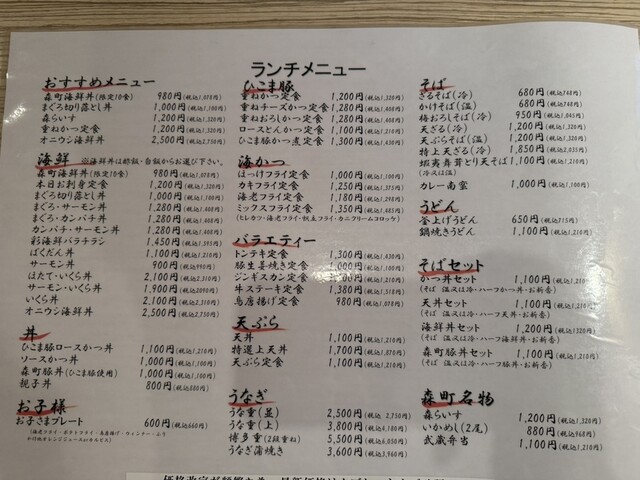 ランチメニュー
おすすめメニュー
森町海鮮丼(限定10食) 980円(税込1,078円)
まぐろ切り落とし丼 1,000円(税込1,100円)
森らいす 1,200円(税込1,320円)
重ねかつ定食 1,200円(税込1,320円)
オニウシ海鮮丼 2,500円(税込2,750円)
海鮮 ※海鮮丼は酢飯・白飯からお選び下さい。
森町海鮮丼(限定10食) 980円(税込1,078円)
本日お刺身定食 1,200円(税込1,320円)
まぐろ切り落とし丼 1,000円(税込1,100円)
まぐろ・サーモン丼 1,280円(税込1,408円)
まぐろ・カンパチ丼 1,280円(税込1,408円)
カンパチ・サーモン丼 1,280円(税込1,408円)
彩海鮮バラチラシ 1,450円(税込1,595円)
ばくだん丼 1,100円(税込1,210円)
サーモン丼 900円(税込990円)
ほたて・いくら丼 2,100円(税込2,310円)
サーモン・いくら丼 1,900円(税込2,090円)
いくら丼 2,100円(税込2,310円)
オニウシ海鮮丼 2,500円(税込2,750円)
丼
ひこま豚ロースかつ丼 1,100円(税込1,210円)
ソースかつ丼 1,000円(税込1,100円)
森町豚丼(ひこま豚使用) 1,000円(税込1,100円)
親子丼 800円(税込880円)
お子様
お子さまプレート 600円(税込660円)
(海老フライ・ポテトフライ・鳥唐揚げ・ウィンナー・ふり
かけ付オレンジジュースorカルピス)
ひこま豚
重ねかつ定食 1,200円(税込1,320円)
重ねチーズかつ定食 1,280円(税込1,408円)
重ねおろしかつ定食 1,280円(税込1,408円)
ロースとんかつ定食 1,100円(税込1,210円)
ひこま豚かつ煮定食 1,300円(税込1,430円)
海かつ
ほっけフライ定食 1,000円(税込1,100円)
カキフライ定食 1,250円(税込1,375円)
海老フライ定食 1,180円(税込1,298円)
ミックスフライ定食 1,350円(税込1,485円)
(ヒレカツ・海老フライ・帆立フライ・カニクリームコロッケ)
バラエティー
トンテキ定食 1,300円(税込1,430円)
豚生姜焼き定食 1,000円(税込1,100円)
ジンギスカン定食 1,100円(税込1,210円)
牛ステーキ定食 1,380円(税込1,518円)
鳥唐揚げ定食 980円(税込1,078円)
天ぷら
天丼 1,100円(税込1,210円)
特選上天丼 1,700円(税込1,870円)
天ぷら定食 1,100円(税込1,210円)
うなぎ
うな重(並) 2,500円(税込 2,750円)
うな重(上) 3,800円(税込4,180円)
博多重(2段重ね) 5,500円(税込6,050円)
うなぎ蒲焼き 3,600円(税込3,960円)
そば
ざるそば(冷) 680円(税込748円)
かけそば(温) 680円(税込748円)
梅おろしそば(冷) 950円(税込1,045円)
天ざる(冷) 1,200円(税込1,320円)
天ぷらそば(温) 1,200円(税込1,320円)
特上天ざる(冷) 1,850円(税込2,035円)
舞茸とり天そば 1,100円(税込1,210円)
(冷又は温)
カレー南蛮 1,000円(税込1,100円)
うどん
釜上げうどん 650円(税込715円)
鍋焼きうどん 1,100円(税込1,210円)
そばセット
かつ丼セット 1,100円(税込1,210円)
(そば 温又は冷・ハーフかつ丼・お新香)
天丼セット 1,100円(税込1,210円)
(そば 温又は冷・ハーフ天丼・お新香)
海鮮丼セット 1,200円(税込1,320円)
(そば 温又は冷・ハーフ海鮮丼・お新香)
森町豚丼セット 1,100円(税込1,210円)
(そば 温又は冷・ハーフ豚丼・お新香)
森町名物
森らいす 1,200円(税込1,320円)
いかめし(2尾) 880円(税込968円)
武蔵弁当 1,100円(税込1,210円)